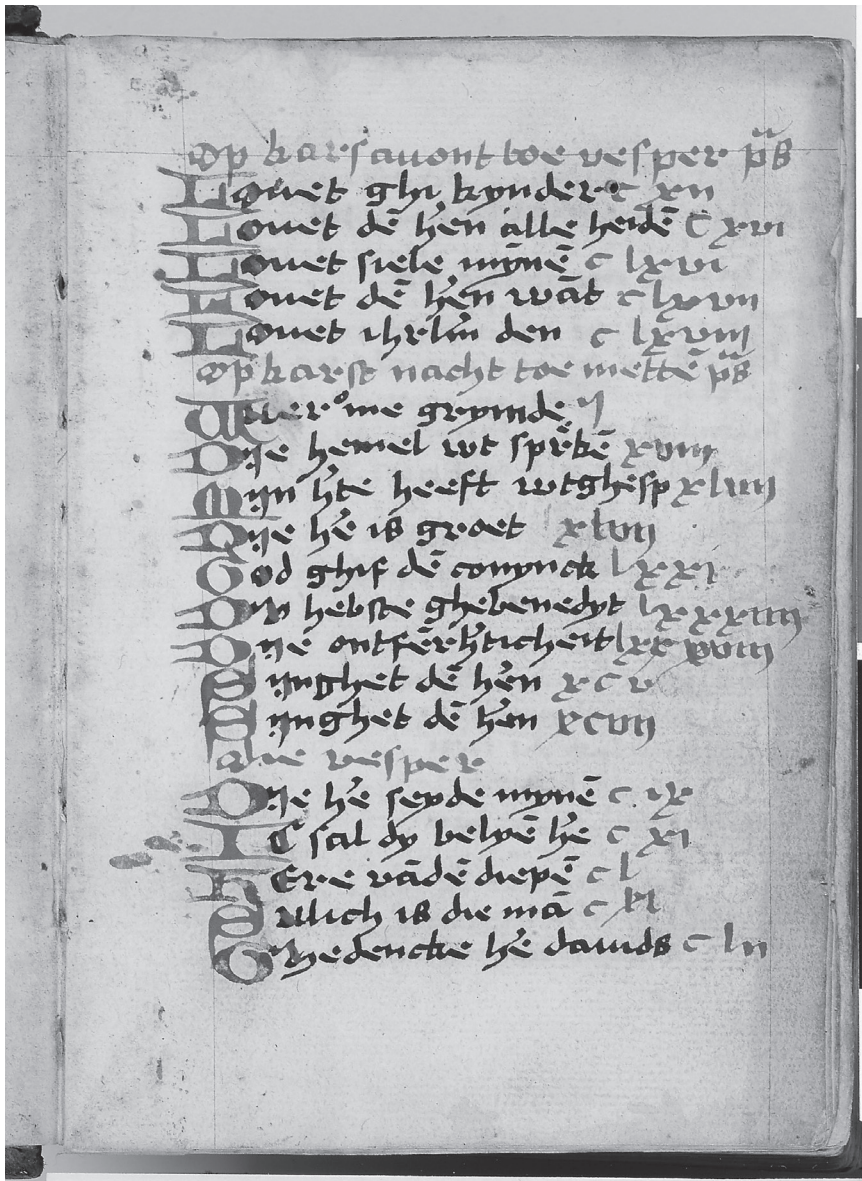 Op karsavont toe vesper ps̄
Louet ghi kyndere c xii
Louet dē h'en alle heidē C xvi
Louet siele mynē c lxvi
Louet dē h'en wāt c lxvii
Louet ihrl'm den c lxviii
Op karst nacht toe mettē ps̄
me grymde ij
Dije hemel wt sprekē xviii
Mijn h'te heeft wtghesp xliiii
Dije h'e is groet xlvii
God ghif dē conynck lxxi
Du hebste ghebenedyt lxxxiiii
Dije ontferh'ticheit lxxxviii
Sijnghet dē h'en xcv
Sijnghet dē h'en xcvii
die vesper
Dije h'e seyde mynē c ix
IC sal dy belyē h'e c xi
HEre vādē diepē c l
Salich is die mā c
Ghedencke h'e dauids c lii